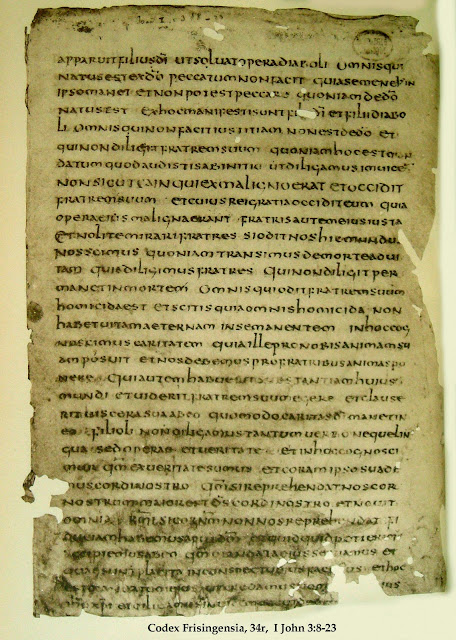 APPARUIT FILIUS DĪ UT SOLUAT OPERA DIABOLI OMNIS QUI
NATUS EST EX DŌ PECCATUM NON FACIT QUIA SEMEN IN
IPSO MANET ET NON POTEST PECCARE QUONIAM DE DŌ
NATUS EST EX HOC MANIFESTI SUNT FILII DĪ ET FILII DIABO
LI OMNIS QUI NON FACIT IUSTITIAM NON EST DE DŌ ET
QUI NON DILIGIT FRATREM SUUM QUONIAM HOC EST
DATUM QUOD AUDISTIS AB INITIO UT DILIGAMUS INUICE
NON SICUT CAIN QUI EX MALIGNO ERAT ET OCCIDIT
FRATREM SUUM ET CUIUS REI GRATIA OCCIDIT EUM QUIA
OPERA EIUS MALIGNA ERANT FRATRIS AUTEM EIUS IUSTA
ET NOLITE MIRARI FRATRES SI ODIT NOS HIC MUNDU
NOS SCIMUS QUONIAM TRANSIMUS DE MORTE AD UI
TAM QUIA DILIGIMUS FRATRES QUI NON DILIGIT PER
MANET IN MORTEM OMNIS QUI ODIT FRATREM SUUM
HOMICIDA EST ET SCITIS QUIA OMNIS HOMICIDA NON
HABET UITAM AETERNAM IN SE MANENTEM IN HOC COG
NOSCIMUS CARITATEM QUIA ILLE PRO NOBIS ANIMAM SU
AM POSUIT ET NOS DEBEMUS PRO FRATRIBUS ANIMAS PO
NERE QUI AUTEM HABUERIT SUBSTANTIAM HUIUS
MUNDI ET UIDERIT FRATREM SUUM EGERE ET CLAUSE
RIT UISCERA SUA AB EO QUOMODO CARITAS DĪ MANET IN
EO FILIOLI NON DILIGAMUS TANTUM UERBO NEQUE LIN
GUA SED OPERA ET UERITATE ET IN HOC COGNOSCI
MUR QM EX UERITATE SUMUS ET CORAM IPSO SUADE
MUS CORDI NOSTRO REPREHENDAT NOS COR
NOSTRUM MAIOR EST DS CORDI NOSTRO ET NOUIT
OMNIA COR NON NOS REPREHENDAT
ET
ET HOC
Codex Frisingensia, 34r, I John 3:8-23